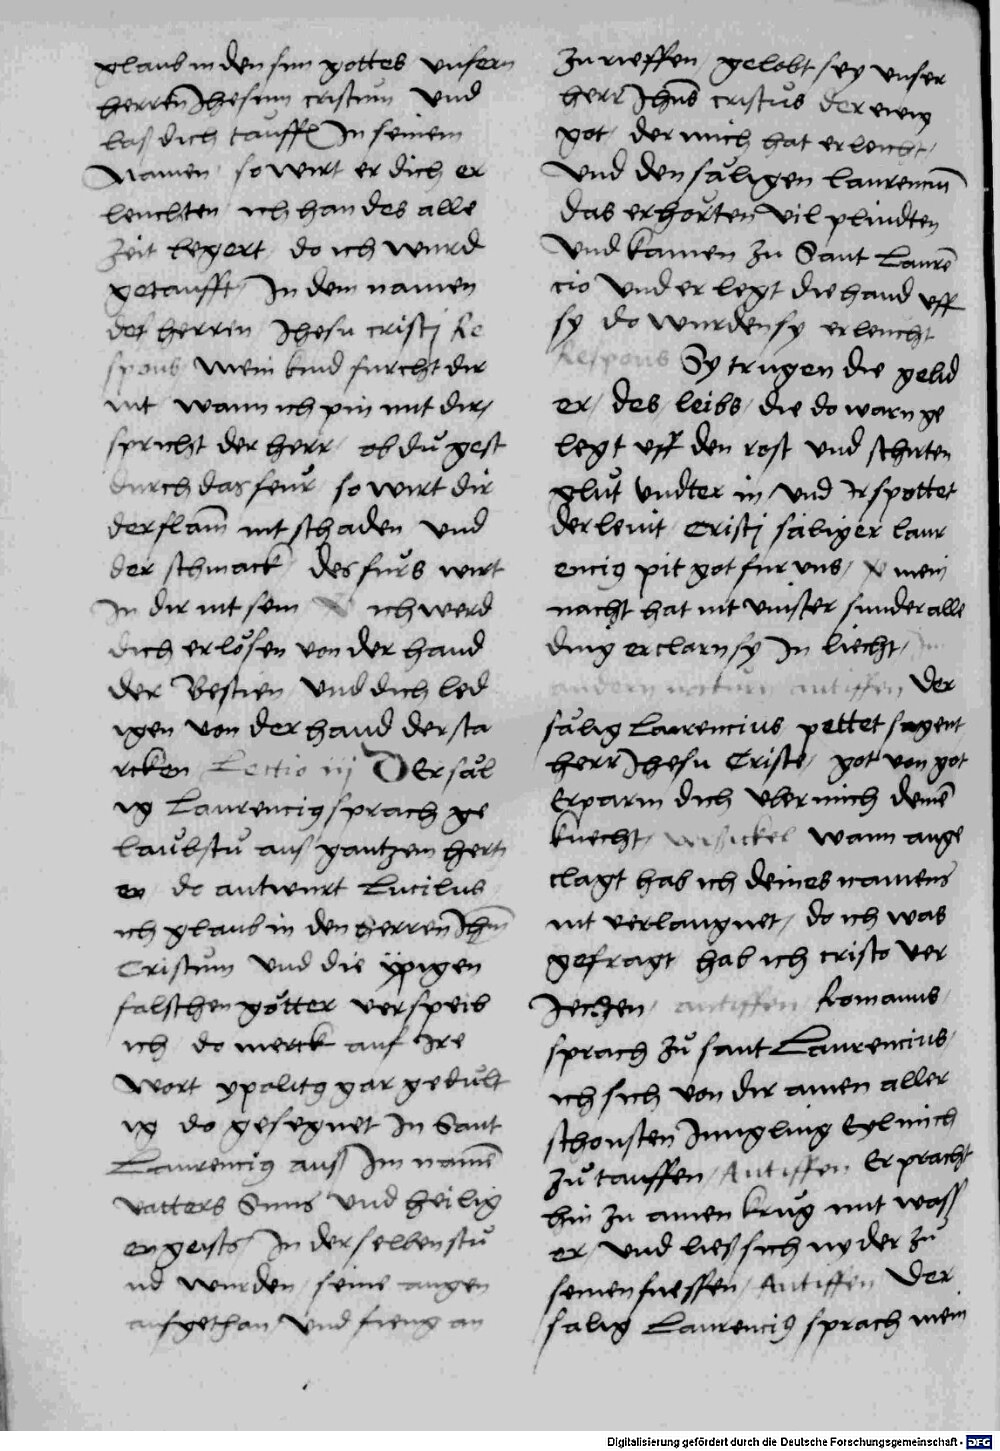 glaub in den sun gottes unsern
herren Jhesum cristum und
las dich tauffen In seinem
Namen / so wirt er dich er
leuchten ich han des alle
Zeit begert / do ich wurd
getaufft / In dem namen
des herren Jhesu cristj Re
spons Mein kind furcht dir
nit wann ich pin mit dir /
spricht der herr / ob du gest
durch das feur / so wirt dir
der flam̄ nit schaden und
der schmack / des furs wirt
In dir nit sein V ich werd
dich erlösen von der hand
der Bestien und dich led
igen von der hand der sta
rcken / Lectio iij DEr säl
ig Laurencius sprach ge
laubstu aus gantzem hertz
en do antwurt Lucilus
ich glaub in den herren Jhm̄
Cristum und die ÿpigen
falschen götter verspeib
ich / do merck auf Ire
Wort ypolitus gar gedult
ig do gesegnet In Sant
Laurencius auss Im namē
vatters Suns und heilig
en geists / In der selben stu
nd wurden / seine augen
aufgethan / und fieng an
Zu rieffen / gelobt sey unser
herr Jhus cristus der ewig
got / der mich hat erleucht /
und den säligen laurenciū
das erhorten vil plindten
und kamen zu Sant Laurē
cio und er legt die hand uff
sy do wurden sy erleucht
Respons Sy trugen die gelid
er / des / leibs / die do warn ge
legt uff den rost und schirten
glut undter in / und Ir spottet
der levit Cristj säliger laur
encius pit got fur uns / V mein
nacht hat nit vinster sunder alle
ding erclarn sy In liecht / Im
andern nocturn antiffen Der
sälig Laurencius pettet sagent
herr Jhesu Criste / got von got
Erparm dich uber mich deinē
knecht / versickel wann ange
clagt hab ich deines namens
nit verlaugnet / do ich was
gefragt hab ich cristo ver
Jechen / antiffen / Romanus
sprach zu sant Laurencius
ich sich von dir ainen aller
schonsten Jungling Eyl mich
zu tauffen / Antiffen Er pracht
hin zu ainen krug mit wass
er / und lies sich nyder zu
seinen fuessen / Antiffen Der
sälig Laurencius sprach mein
Digitalisierung gefördert durch die Deutsche Forschungsgemeinschaft - DFG